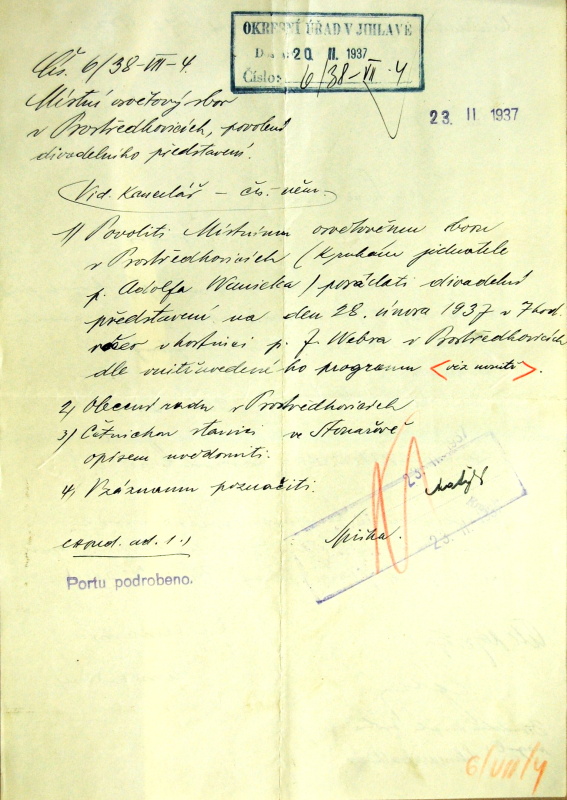 OKRESNÍ ÚŘAD V JIHLAVĚ
Došlo 20 II. 1937
Číslo: 6/38-VII-4
23. II 1937
Čís. 6/38-VII-4.
Místní osvětový sbor
v Prostředkovicích, povolení
divadelního představení.
Vid. Kancelář – čís.-něm.
1) Povoliti Místnímu osvětovému sboru
v Prostředkovicích (k rukám jednatele
p. Adolfa) pořádati divadelní
představení na den 28. února 1937 v 7 hod.
večer v hostinci p. J. Webra v Prostředkovicích
dle vnitřuvedeného programu <viz vnitř>.
2) Obecní radu v Prostředkovicích
3) Četnickou stanici ve Stonařově
opisem uvědomiti.
4) V záznamu poznačiti.
ad. 1.)
Portu podrobeno.
23. II.
6/VII/4